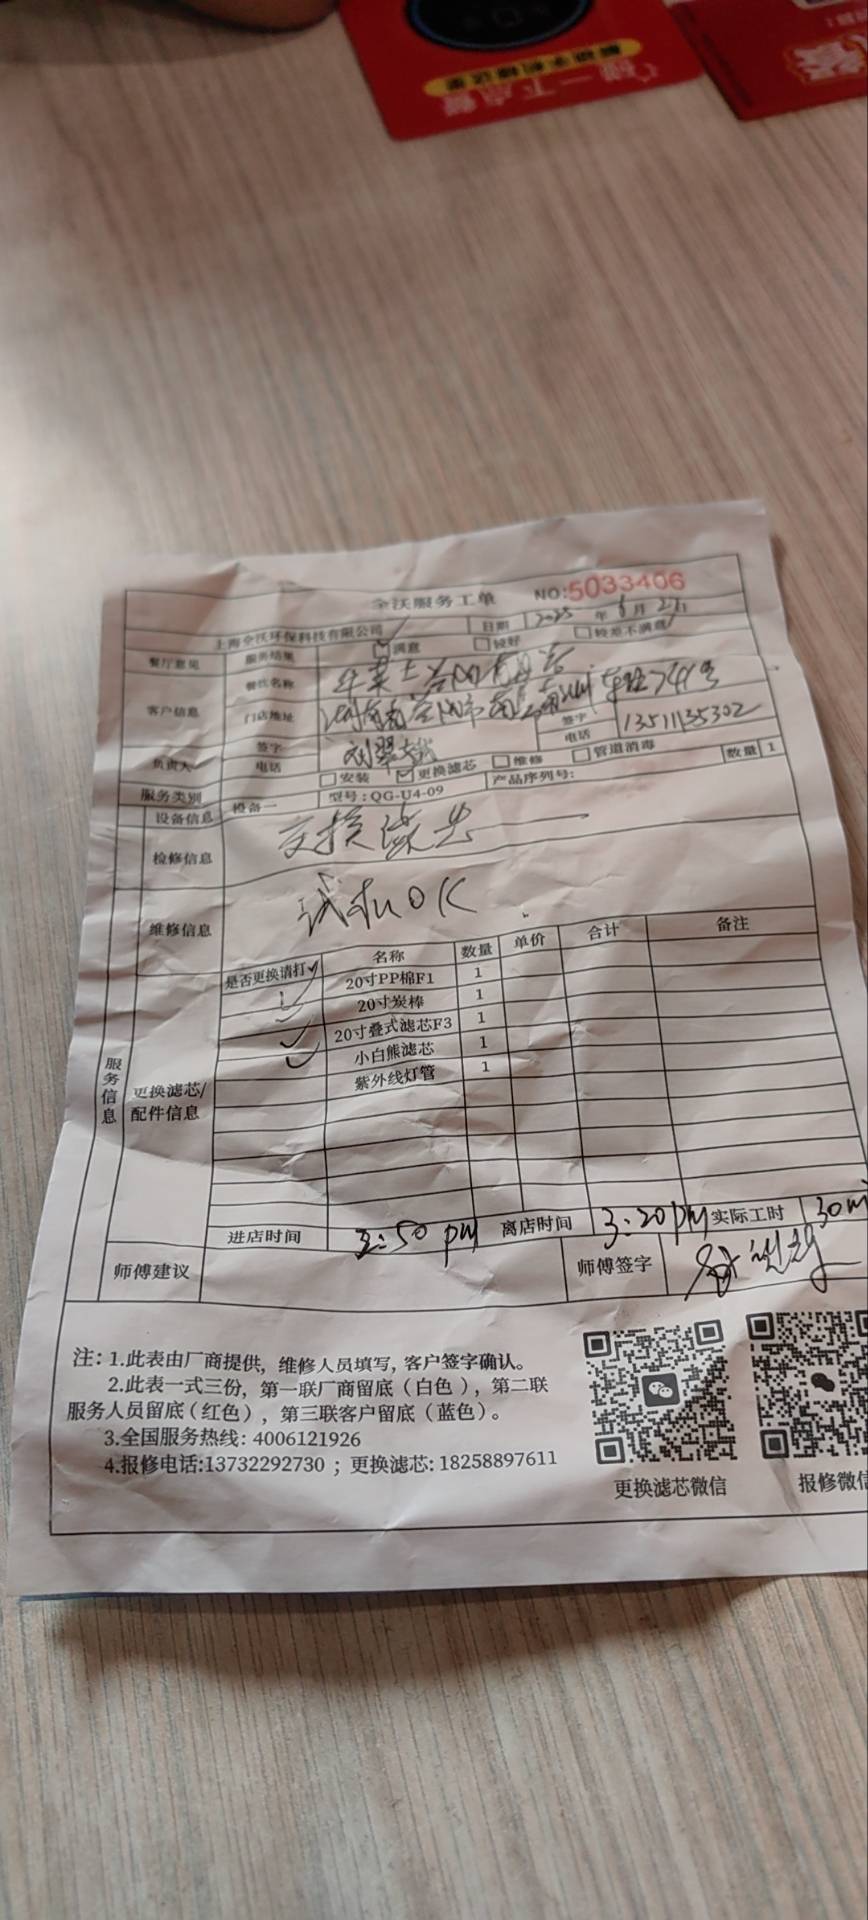 碰一下点餐
全沃服务工单 NO:5033406
上海全沃环保科技有限公司 日期 2025 年 月 日
餐厅意见 服务结果 满意 较好 较差不满意
客户信息 餐饮名称 华莱士
门店地址 湖南省 阳市南
负责人 签字 刘翠 签字
电话 电话 13511135302
服务类别 安装 更换滤芯 维修 管道消毒
设备信息 设备一 型号:QG-U4-09 产品序列号: 数量 1
检修信息 交换滤芯
维修信息 试机OK
服务信息
更换滤芯/配件信息
是否更换请打✓ 名称 数量 单价 合计 备注
20寸PP棉F1 1
20寸炭棒 1
20寸叠式滤芯F3 1
小白熊滤芯 1
紫外线灯管 1
进店时间 2:50 pm 离店时间 3:20 pm 实际工时 30m
师傅建议 师傅签字
注:1.此表由厂商提供,维修人员填写,客户签字确认。
2.此表一式三份,第一联厂商留底(白色),第二联
服务人员留底(红色),第三联客户留底(蓝色)。
3.全国服务热线:4006121926
4.报修电话:13732292730 ;更换滤芯:18258897611
更换滤芯微信 报修微信